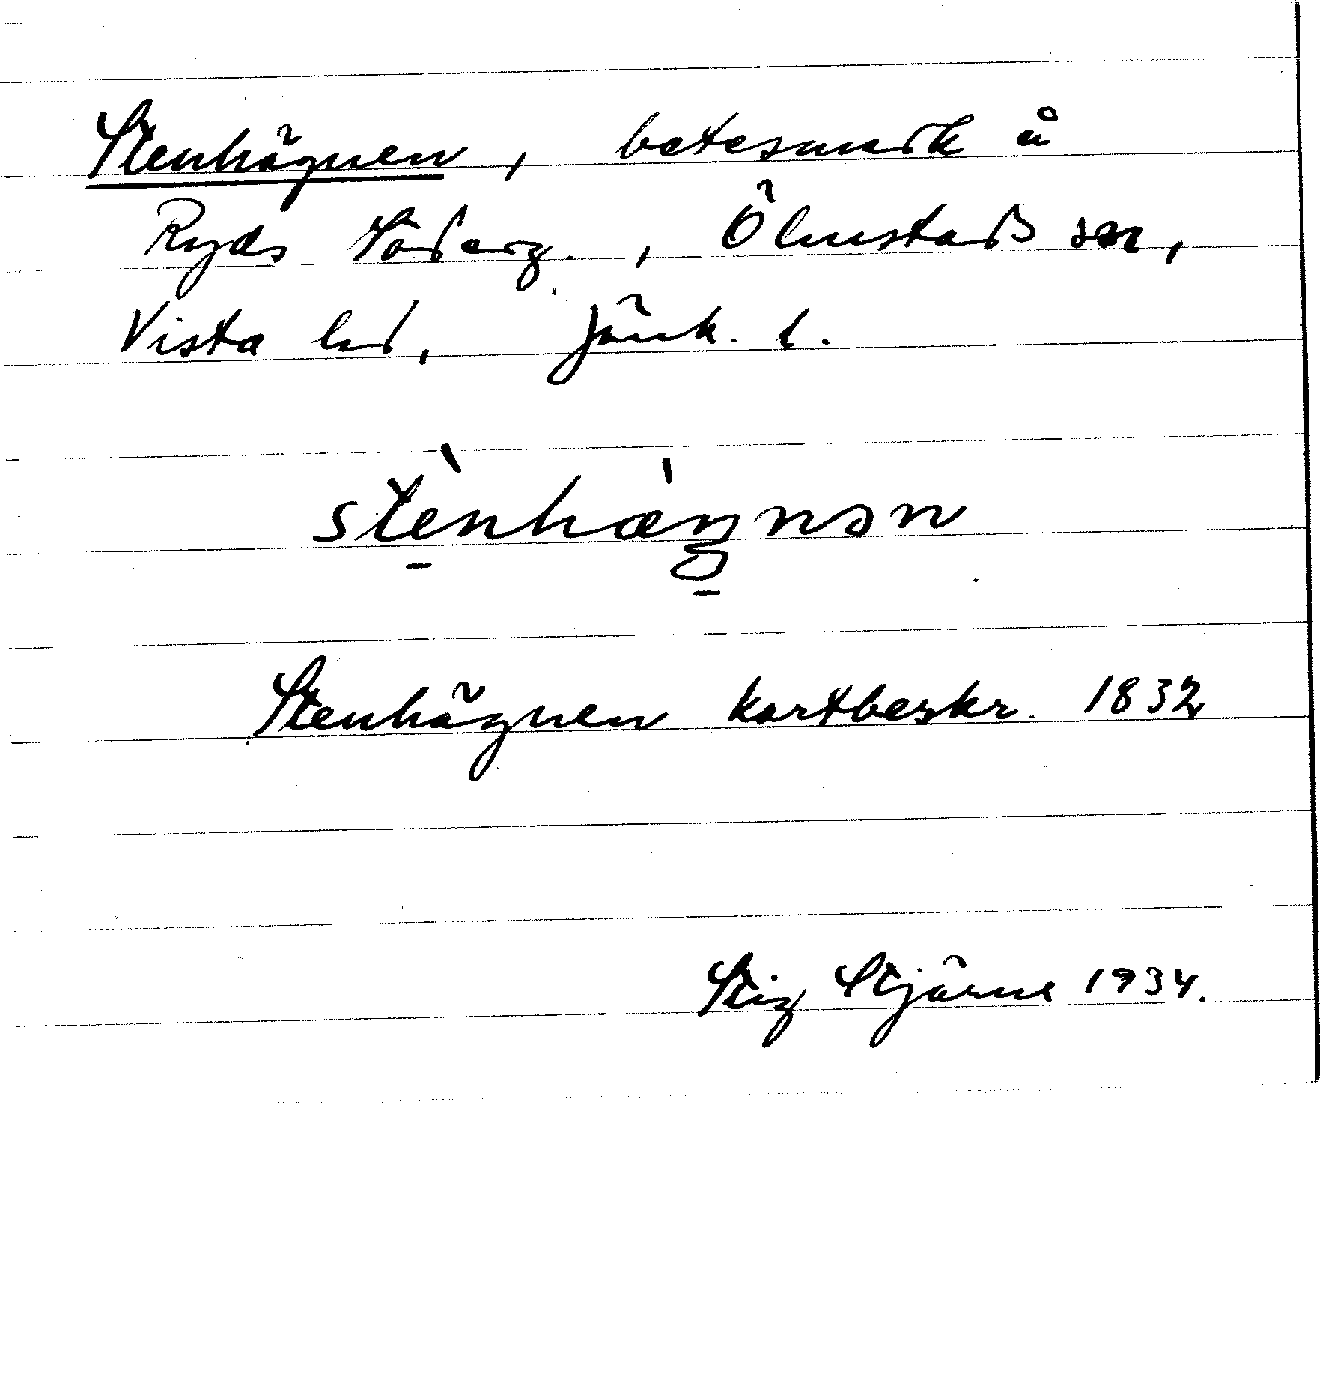 Stenhägnen, betesmark å
Ryds Söderg., Ölmstads sn,
Vista hd, Jönk. l.
stènhæ̀ŋnən
Stenhägnen kartbeskr. 1832
Stig Stjärne 1934.